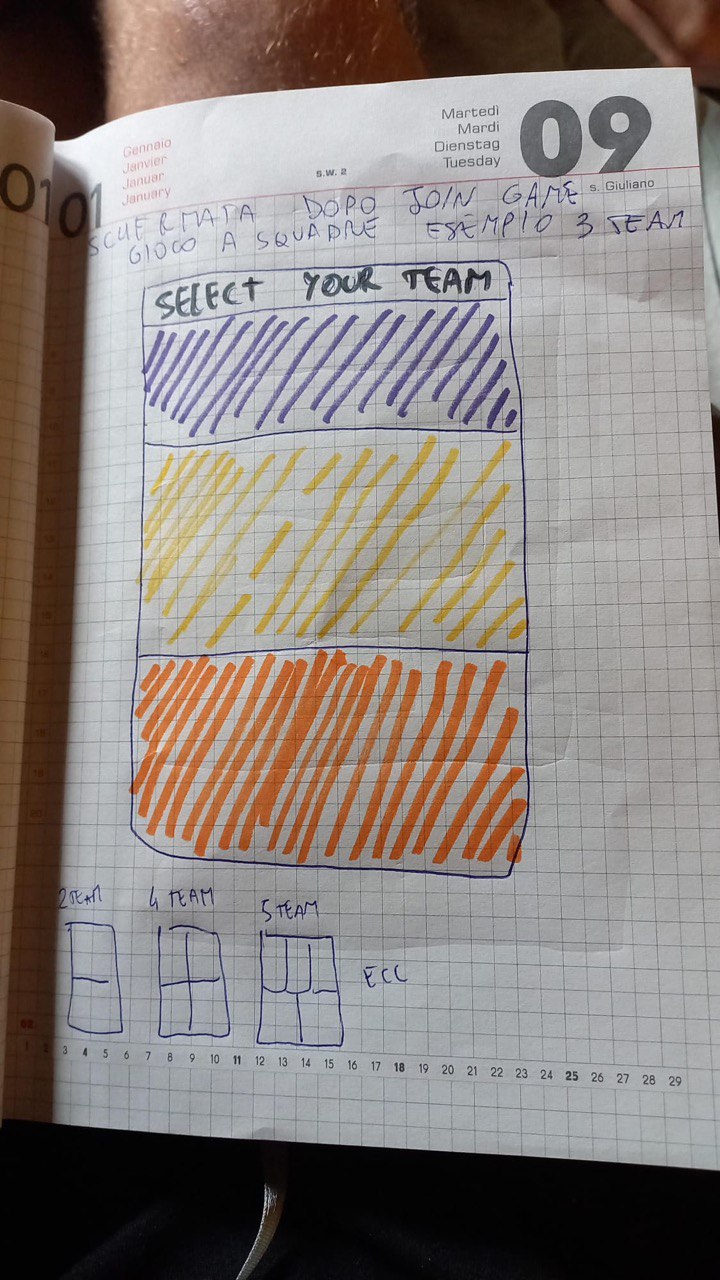 01
01
Gennaio
Janvier
Januar
January
S.W. 2
Martedì
Mardi
Dienstag
Tuesday
09
s. Giuliano
SCHERMATA DOPO JOIN GAME
GIOCO A SQUADRE ESEMPIO 3 TEAM
SELECT YOUR TEAM
2 TEAM 4 TEAM 5 TEAM
ECC
02
1 2 3 4 5 6 7 8 9 10 11 12 13 14 15 16 17 18 19 20 21 22 23 24 25 26 27 28 29